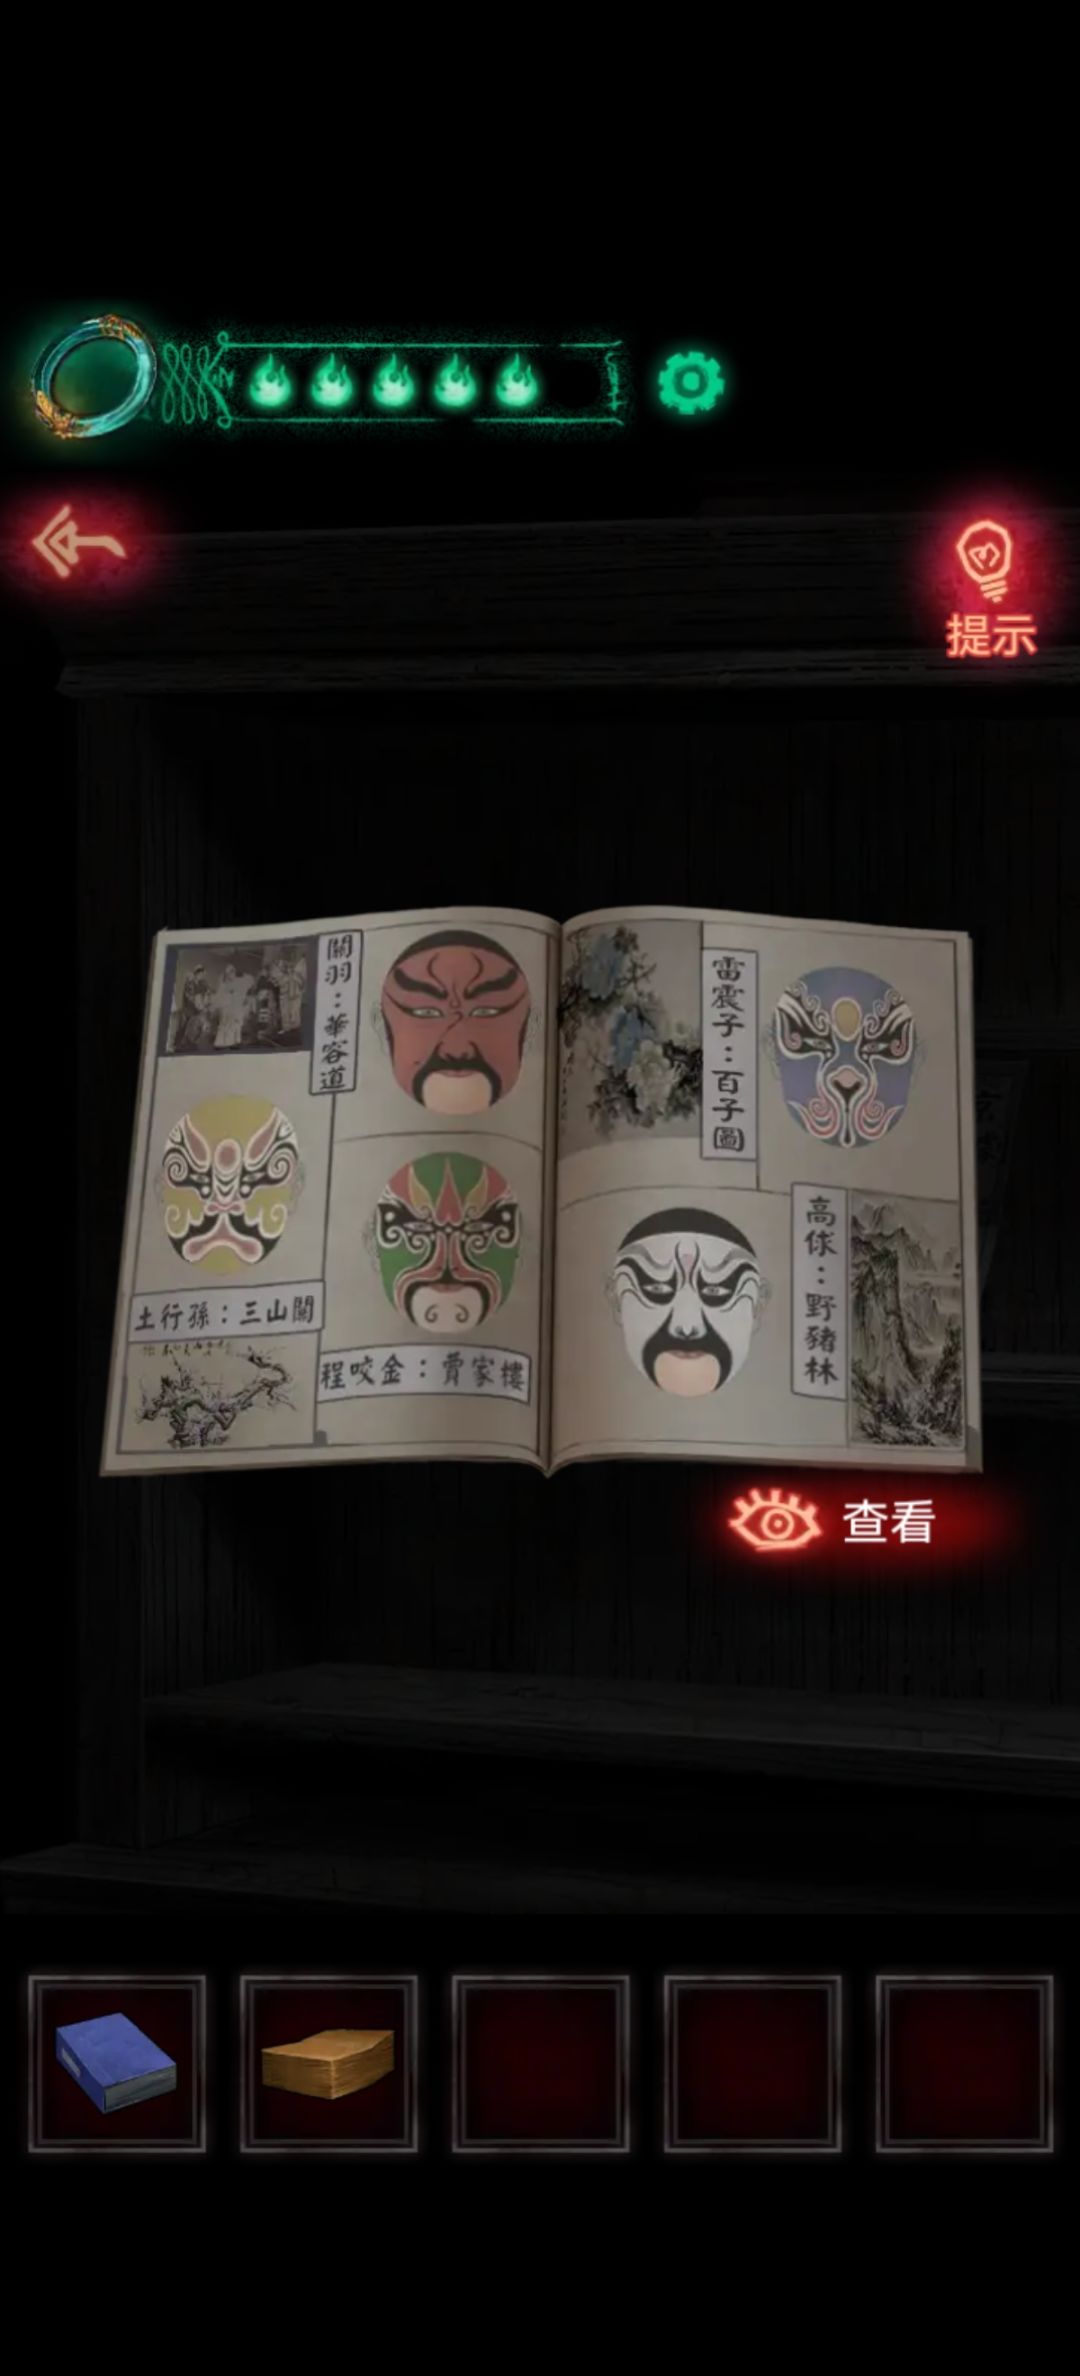 提示
關羽：華容道
土行孫：三山關
程咬金：賈家樓
雷震子：百子圖
高俅：野豬林
查看